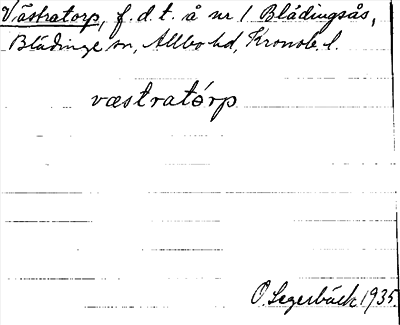 Västratorp, f. d. t. å nr 1 Blådingsås,
Blädinge sn, Allbo hd, Kronob. l.
væstratórp
O. Segerbäck 1935.